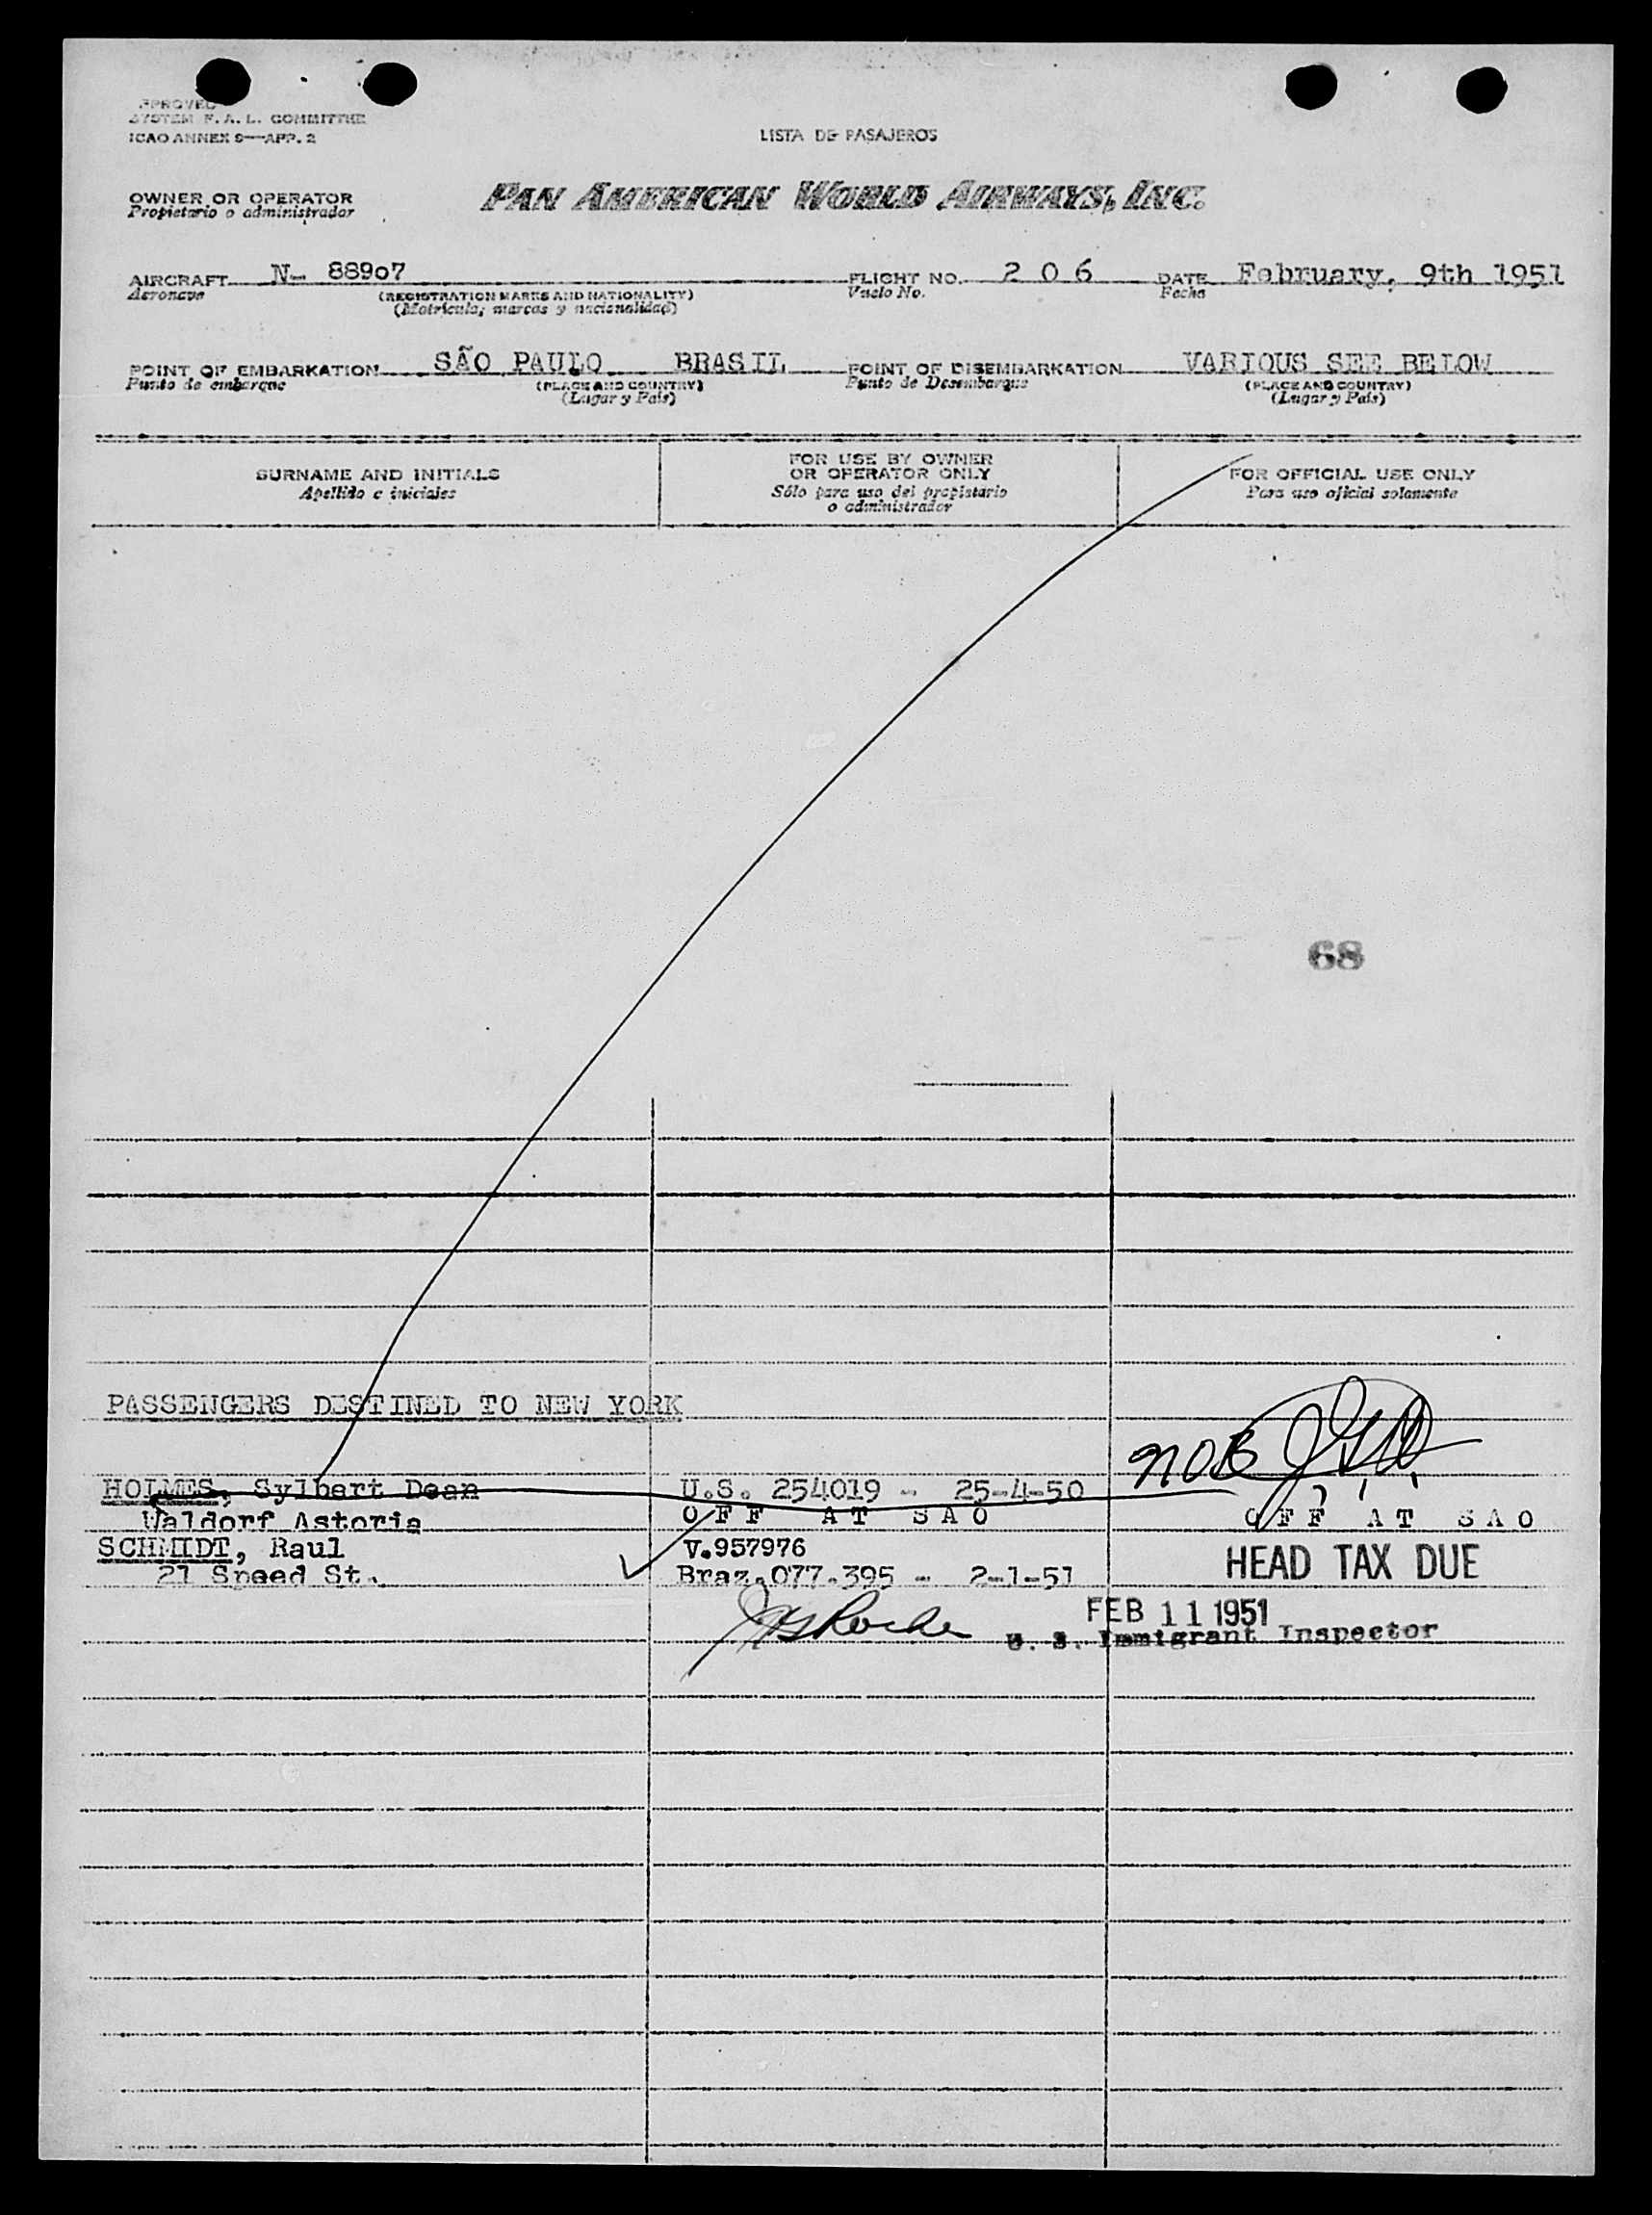 APPROVED
SYSTEM F. A. L. COMMITTEE
ICAO ANNEX 9—APP. 2
LISTA DE PASAJEROS
OWNER OR OPERATOR
Propietario o administrador
PAN AMERICAN WORLD AIRWAYS, INC.
AIRCRAFT N- 88907 FLIGHT NO. 2 0 6 DATE February, 9th 1951
Aeronave (REGISTRATION MARKS AND NATIONALITY) Vuelo No. Fecha
(Matrícula, marcas y nacionalidad)
POINT OF EMBARKATION SÃO PAULO BRASIL POINT OF DISEMBARKATION VARIOUS SEE BELOW
Punto de embarque (PLACE AND COUNTRY) Punto de Desembarque (PLACE AND COUNTRY)
(Lugar y País) (Lugar y País)
SURNAME AND INITIALS
Apellido e iniciales
FOR USE BY OWNER
OR OPERATOR ONLY
Sólo para uso del propietario
o administrador
FOR OFFICIAL USE ONLY
Para uso oficial solamente
68
PASSENGERS DESTINED TO NEW YORK
NOB
HOLMES, Sylbert Dean U.S. 254019 - 25-4-50
O F F A T S A O O F F A T S A O
Waldorf Astoria
SCHMIDT, Raul V.957976 HEAD TAX DUE
21 Speed St. Braz.077.395 - 2-1-51
FEB 11 1951
U. S. Immigrant Inspector